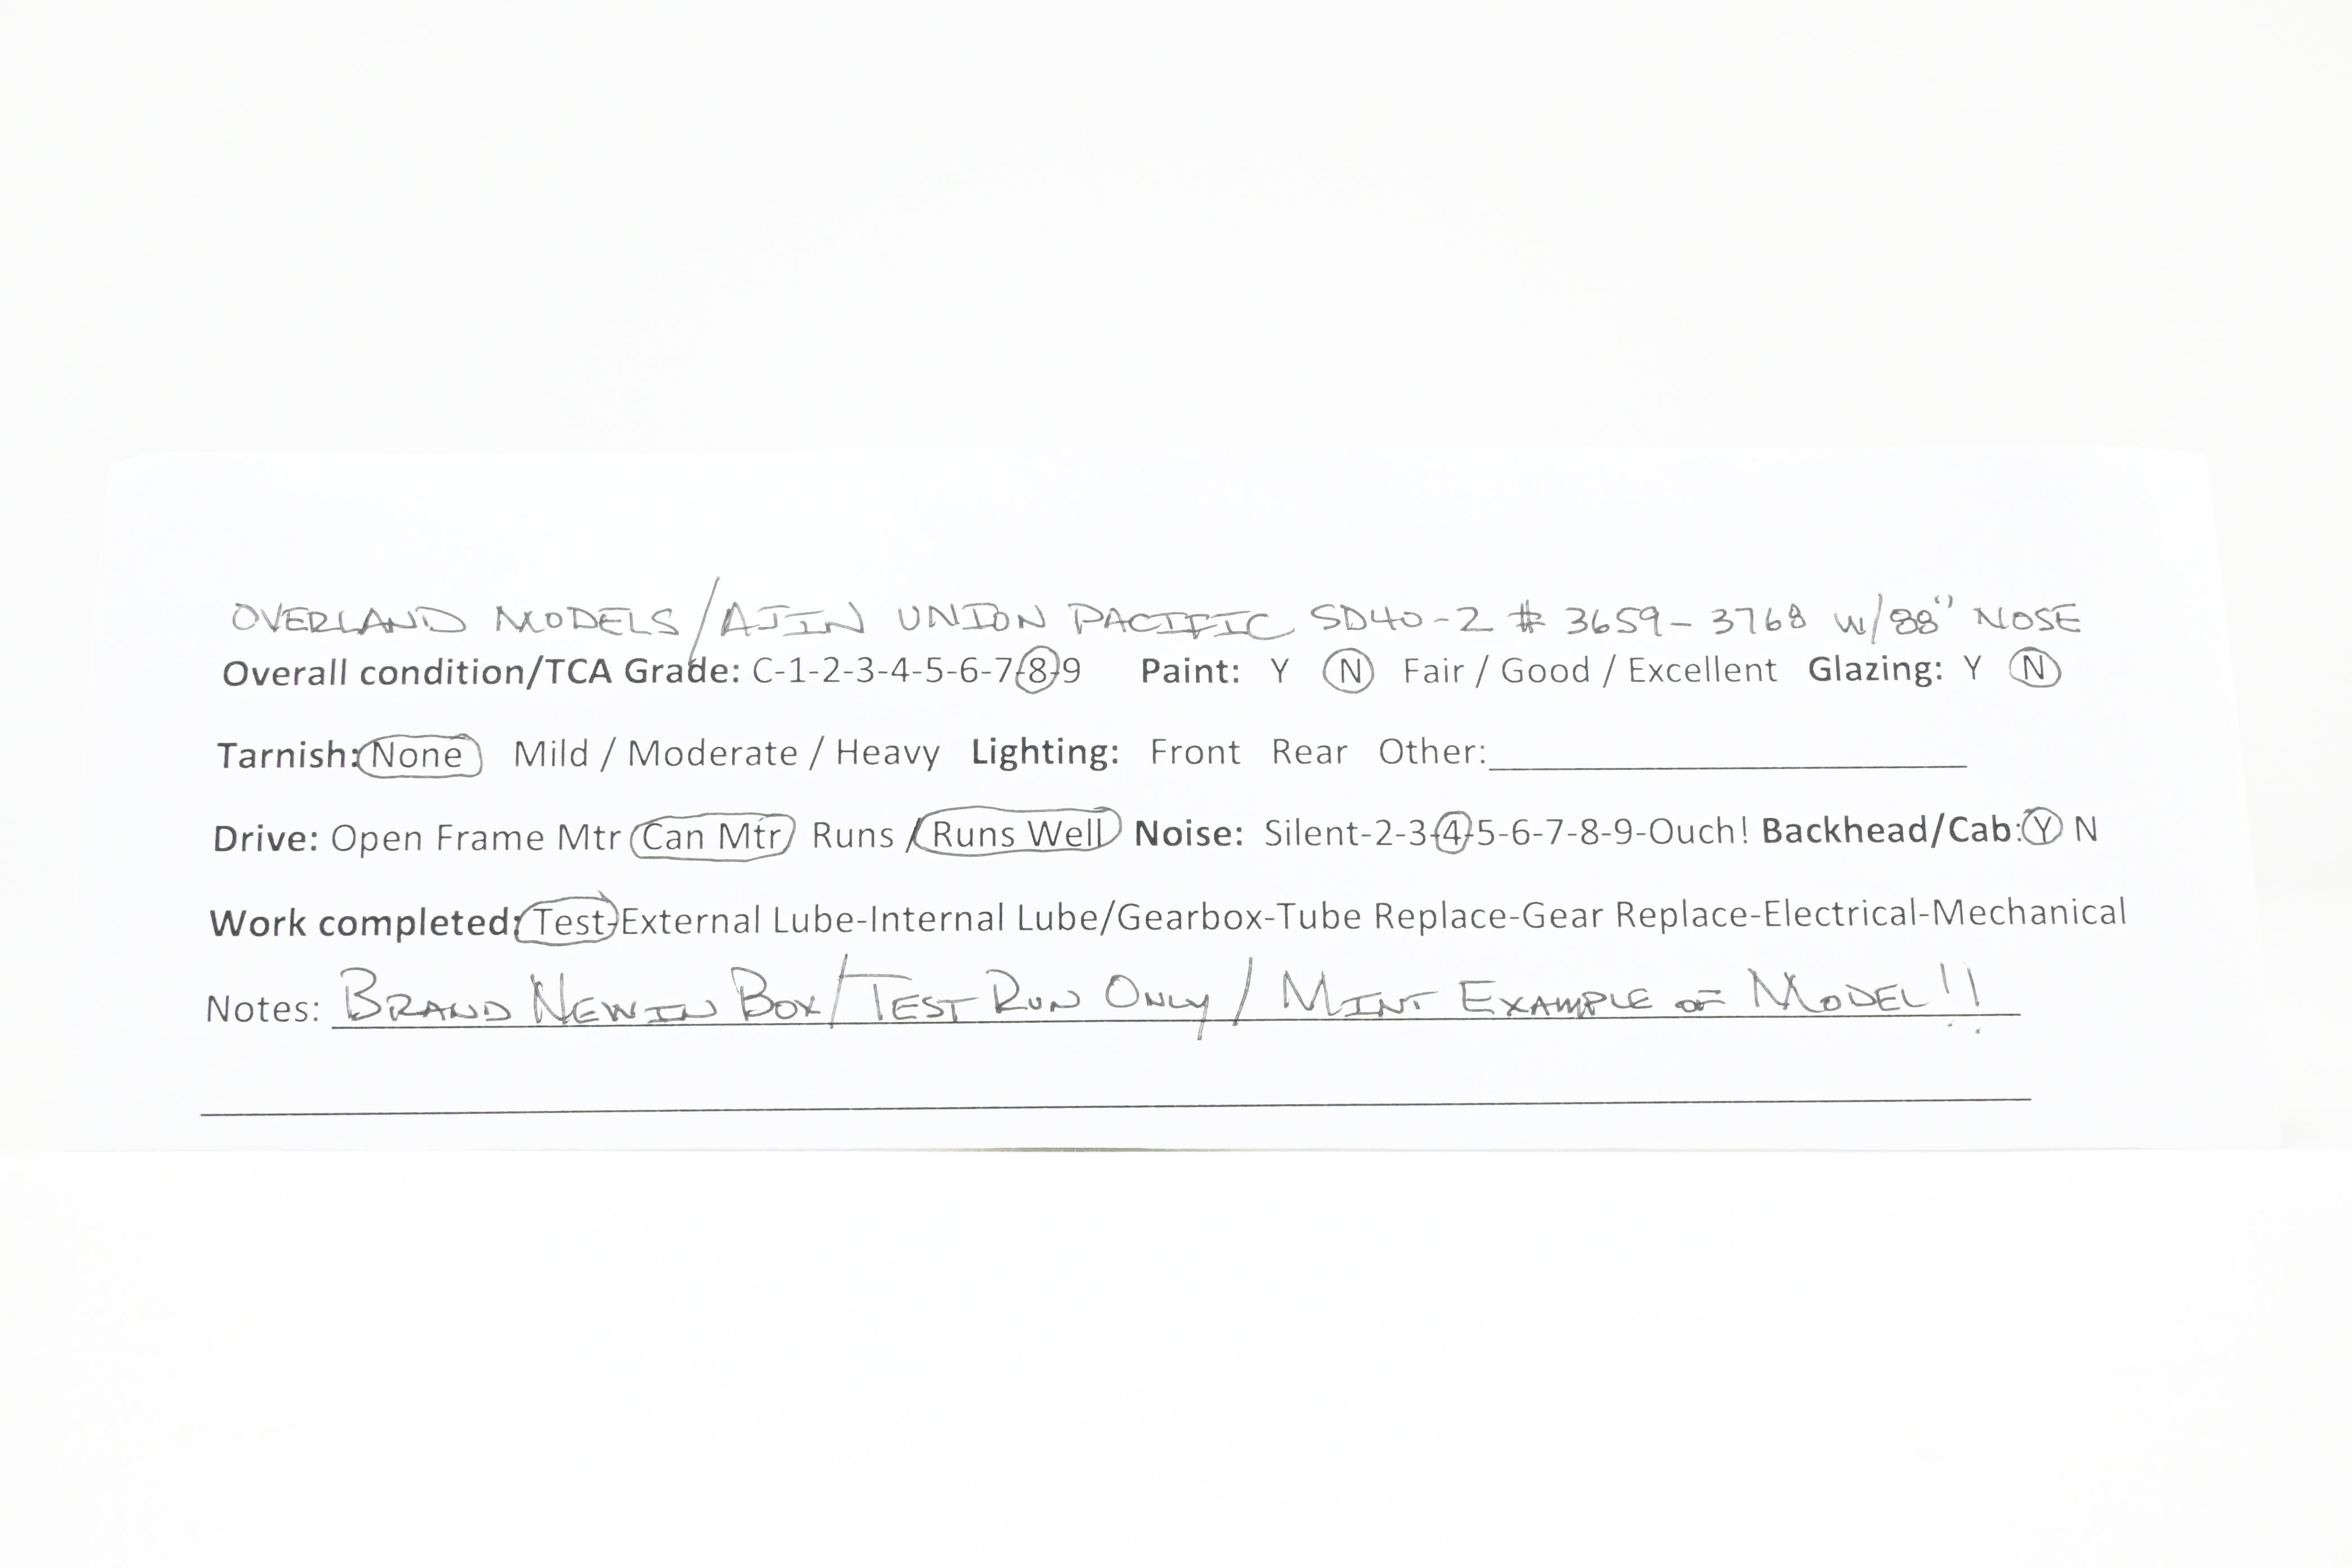 OVERLAND MODELS/AJIN UNION PACIFIC SD40-2 # 3659-3768 W/88" NOSE
Overall condition/TCA Grade: C-1-2-3-4-5-6-7-8-9 Paint: Y N Fair / Good / Excellent Glazing: Y N
Tarnish: None Mild / Moderate / Heavy Lighting: Front Rear Other:
Drive: Open Frame Mtr Can Mtr Runs / Runs Well Noise: Silent-2-3-4-5-6-7-8-9-Ouch! Backhead/Cab: Y N
Work completed: Test-External Lube-Internal Lube/Gearbox-Tube Replace-Gear Replace-Electrical-Mechanical
Notes: BRAND NEW IN BOX/TEST RUN ONLY/MINT EXAMPLE OF MODEL!!